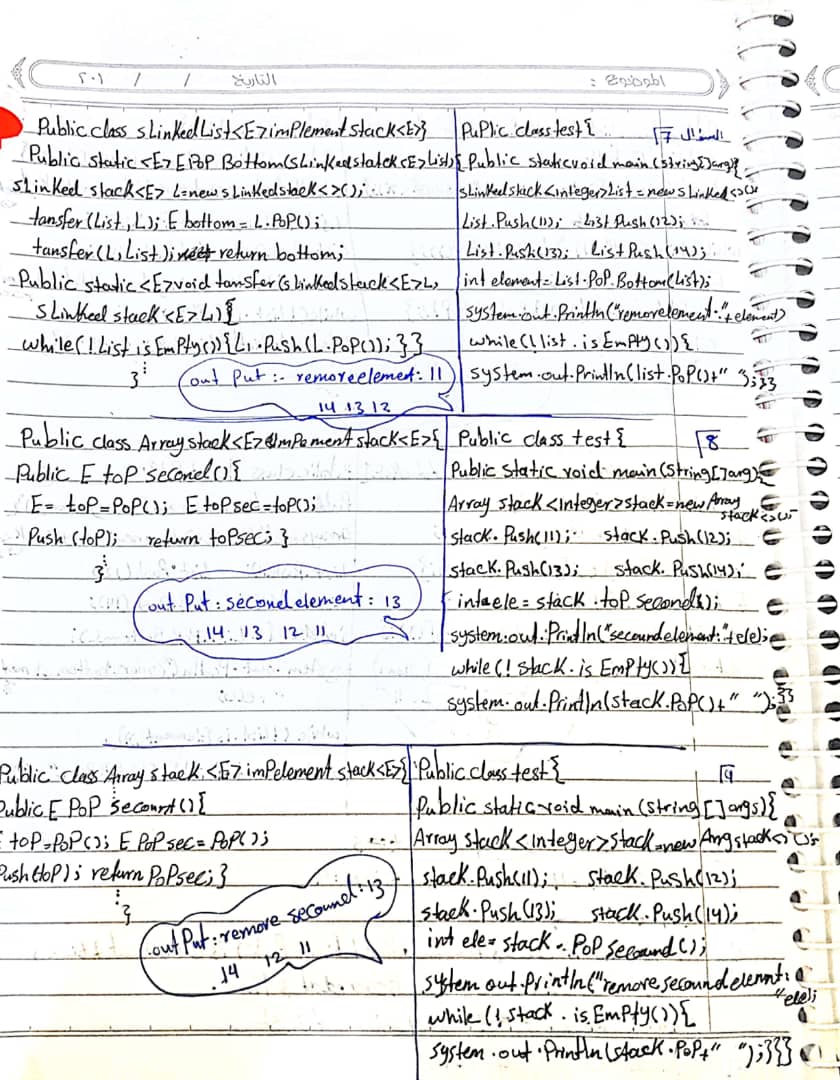 الموضوع :
التاريخ / / ٢٠١
Public class sLinkedList<E>implement stack<E>}
Public static <E> E PoP Bottom(sLinkedstatck<E>List){
sLinked stack<E> L=new sLinkedstack<>();
tansfer(List,L); E bottom= L.PoP();
tansfer(L,List); return bottom;
Public static<E>void tansfer(sLinkedsteack<E>L,
sLinked stack<E>L1){
while(!List isEmPty()){L1.Push(L.PoP()); } }
}
out Put :- removeelement: 11
14 13 12
السؤال 7
PuPlic class test{
Public staticvoid main(string[]arg){
sLinkedstack<integer>List=new sLinked<>()
List.Push(11); List Push(12);
List.Push(13); List Push(14);
int element=List.PoP.Bottom(List);
system.out.Println("removelement:"+element)
while(!list.isEmPty()){
system.out.Println(list.PoP()+" ");}}
Public class Arraystack<E>imPement stack<E>{
Public E toP seconel(){
E= toP=PoP(); E toPsec=toP();
Push (toP); return toPsec; }
}
out Put: seconel element: 13
14 13 12 11
8
Public class test{
Public static void main(String[]arg){
Array stack<integer>stack=new Array
stack<>();
stack.Push(11); stack.Push(12);
stack.Push(13); stack.Push(14);
int ele= stack.toP seconel();
system.out.Println("secoundelement:"+ele);
while(! stack.is EmPty()){
system.out.Println(stack.PoP()+" ");}}
Public class Array stack<E> imPelement stack<E>{
Public E PoP secount(){
toP=PoP(); E PoPsec= PoP();
Push(toP); return PoPsec; }
}
outPut: remove secound: 13
14 12 11
9
Public class test{
Public static void main(string[]args){
Array stack<integer>stack=new Arraystack<>();
stack.Push(11); stack.Push(12);
stack.Push(13); stack.Push(14);
int ele= stack.PoP secound();
system out.println("remove secound elemnt:
"ele);
while(!stack.is EmPty()){
system.out.Println(stack.PoP+" ");}}}